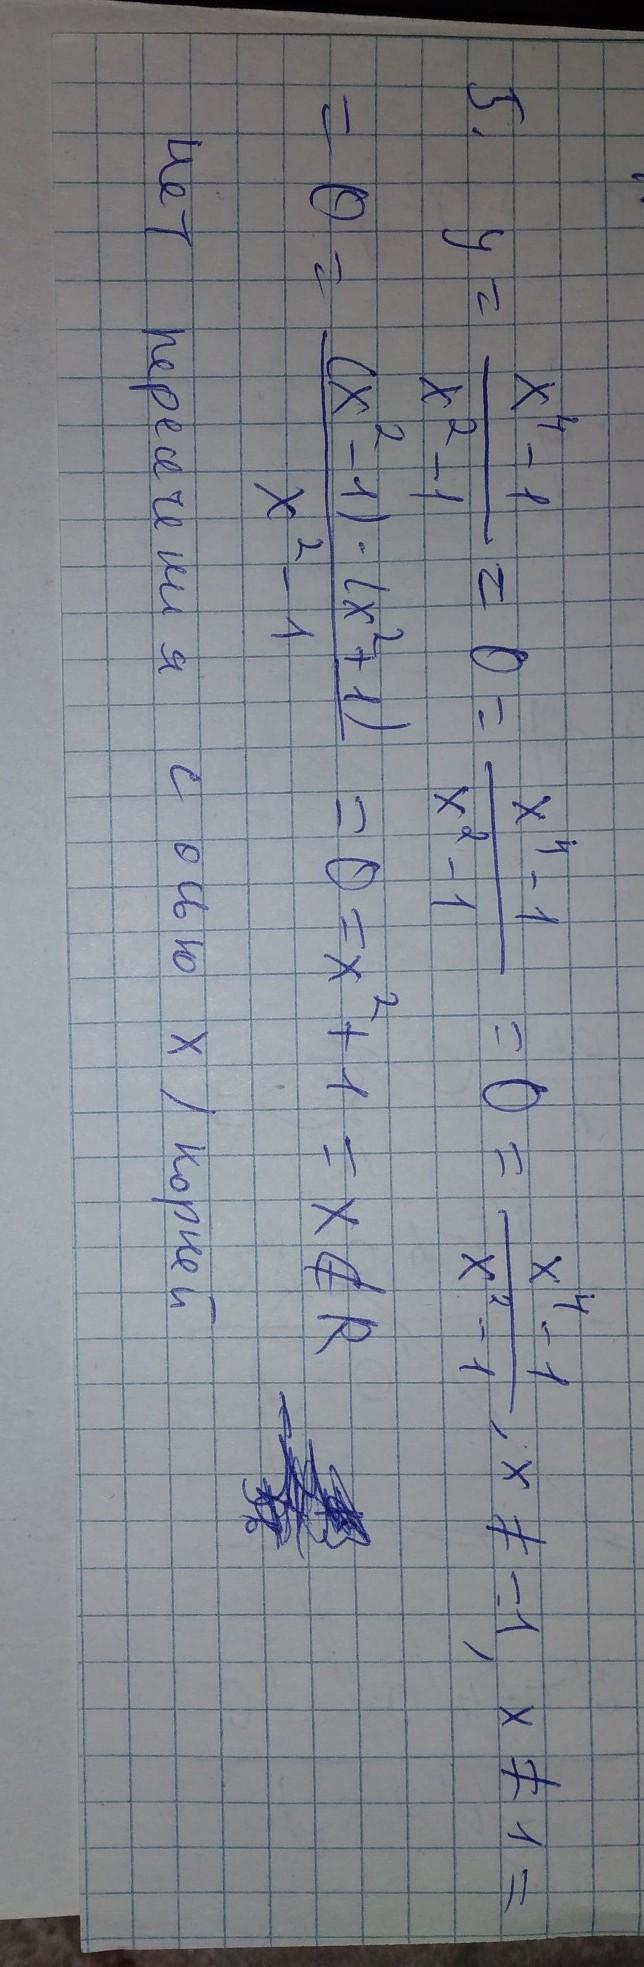 5. y = \frac{x^4-1}{x^2-1} = 0 = \frac{x^4-1}{x^2-1} = 0 = \frac{x^4-1}{x^2-1}, x ≠ -1, x ≠ 1 =
= 0 = \frac{(x^2-1)·(x^2+1)}{x^2-1} = 0 = x^2+1 = x ∉ R
Нет пересечения с осью x / корней